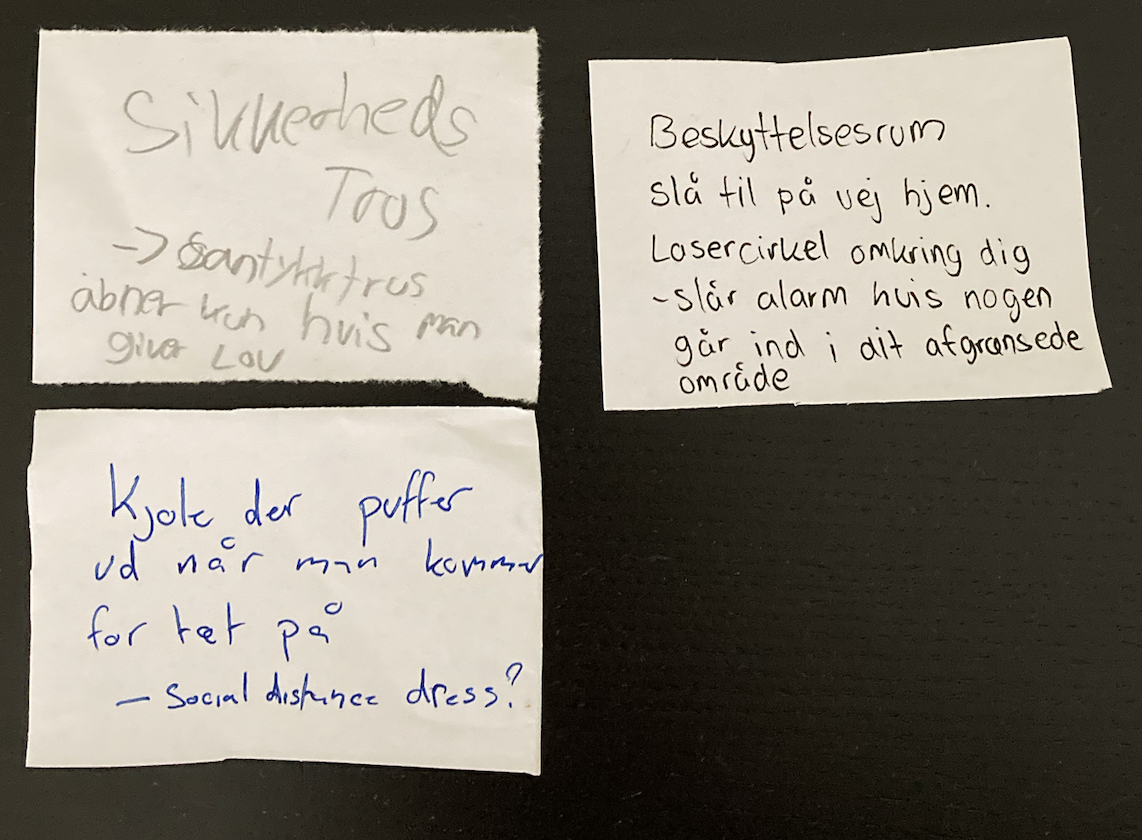 Sikkerheds
Trus
-> Samtykketrus
åbner kun hvis man
giver Lov
Beskyttelsesrum
slå til på vej hjem.
Lasercirkel omkring dig
- slår alarm hvis nogen
går ind i dit afgrænsede
område
Kjole der puffer
ud når man kommer
for tæt på
- Social distance dress?